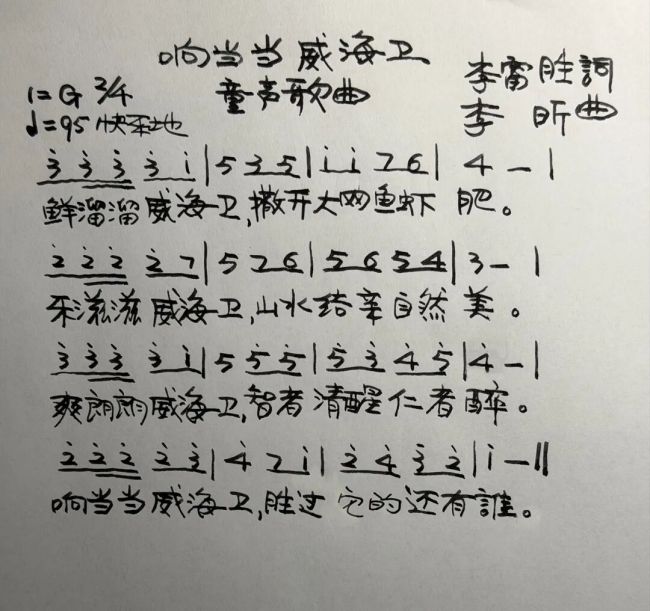 响当当威海卫
童声歌曲
李雷胜詞
李昕曲
1=G 3/4
♩=95 快乐地
3̇ 3̇ 3̇ 3̇ 1̇ | 5 3 5 | 1̇ 1̇ 7 6 | 4 – |
鲜溜溜威海卫,撒开大网鱼虾肥。
2̇ 2̇ 2̇ 2̇ 7 | 5 7 6 | 5 6 5 4 | 3 – |
乐滋滋威海卫,山水结亲自然美。
3̇ 3̇ 3̇ 3̇ 1̇ | 5 5̇ 5̇ | 5̇ 3̇ 4̇ 5̇ | 4̇ – |
爽朗朗威海卫,智者清醒仁者醉。
2̇ 2̇ 2̇ 2̇ 3̇ | 4̇ 7 1̇ | 2̇ 4̇ 3̇ 2̇ | 1̇ – ‖
响当当威海卫,胜过它的还有誰。